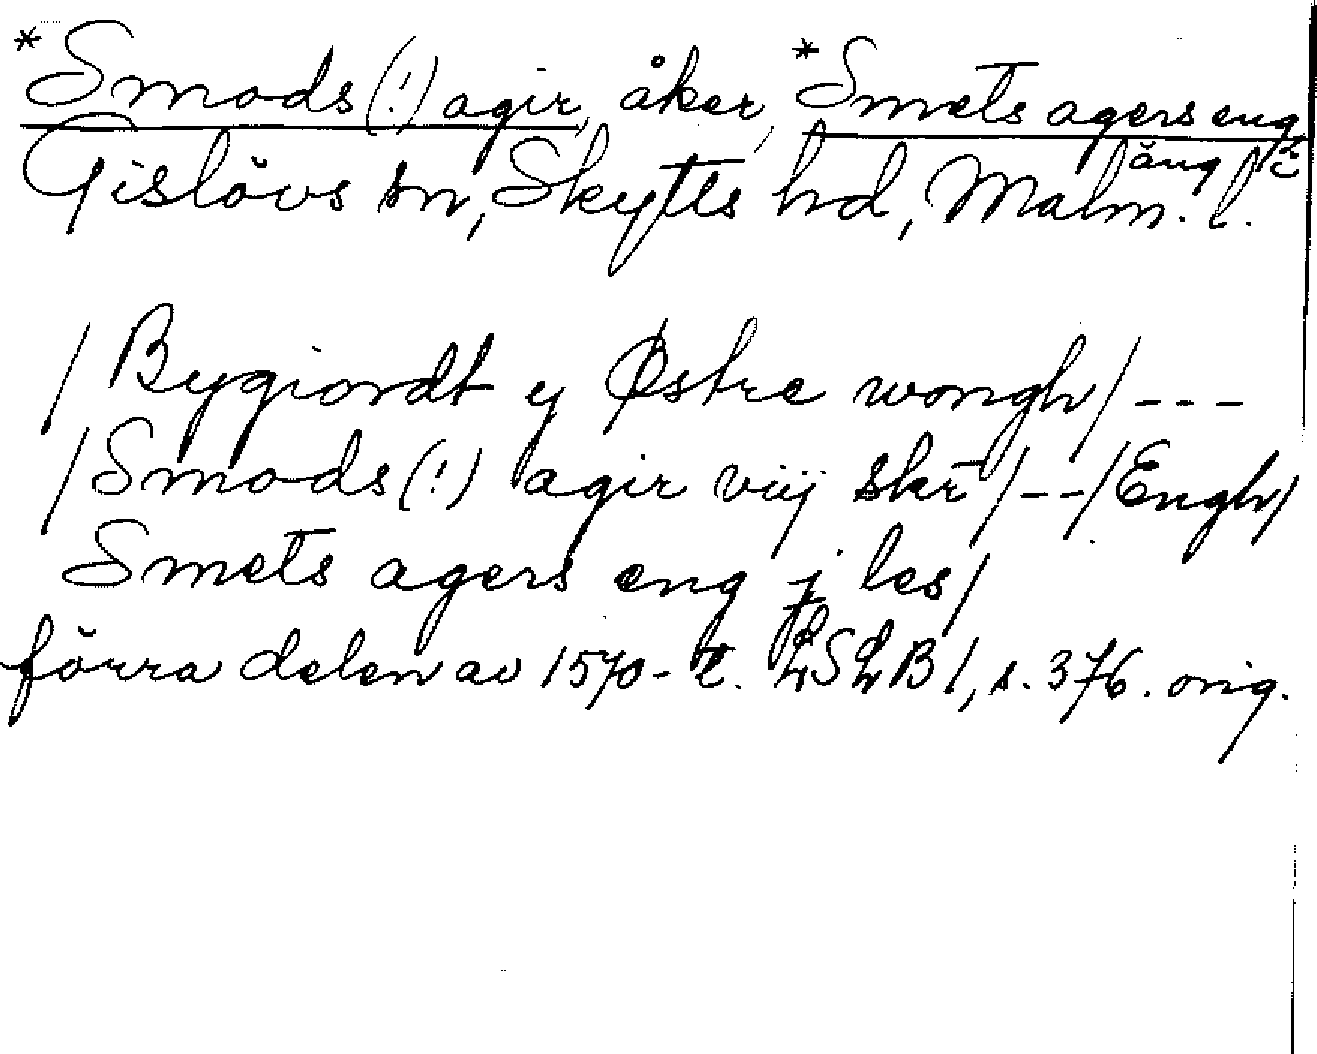 *Smods(!) agir, åker, *Smets agers eng,
äng
Gislövs sn, Skytts hd, Malm. l.
/Bygiordt y Østre wongh/---
/Smods(!) agir viij skr̄/--/Engh/
Smets agers eng j les/
förra delen av 1570-t. LSLB 1, s. 376. orig.